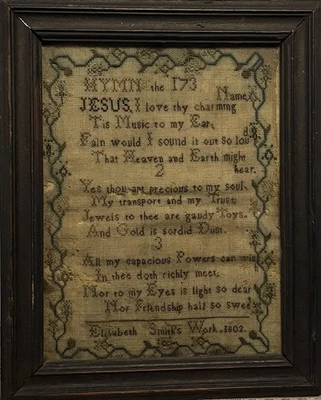 HYMN the 173
JESUS, I love thy charming Name
Tis Music to my Ear,
Fain would I sound it out so loud
That Heaven and Earth might hear.
2
Yes thou art precious to my soul,
My transport and my Trust,
Jewels to thee are gaudy Toys,
And Gold is sordid Dust.
3
All my capacious Powers can wis
In thee doth richly meet,
Nor to my Eyes is light so dear
Nor Friendship half so sweet
Elisabeth Smith's Work, 1802.